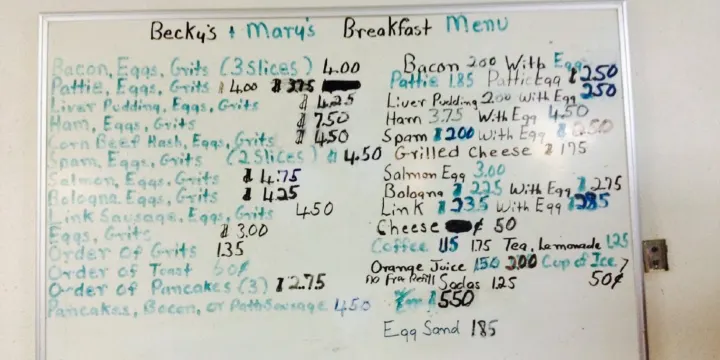 Becky's + Mary's Breakfast Menu
Bacon, Eggs, Grits (3 Slices) 4.00
Pattie, Eggs, Grits $ 4.00
Liver Pudding, Eggs, Grits $ 4.25
Ham, Eggs, Grits $ 7.50
Corn Beef Hash, Eggs, Grits $ 4.50
Spam, Eggs, Grits (2 Slices) $ 4.50
Salmon, Eggs, Grits $ 4.75
Bologna Eggs, Grits $ 4.25
Link Sausage, Eggs, Grits 4.50
Eggs, Grits $ 3.00
Order of Grits 1.35
Order of Toast 50¢
Order of Pancakes (3) $ 2.75
Pancakes, Bacon, or Patti Sausage 4.50
Bacon 2.00 With Egg $ 2.50
Pattie 1.85 Pattie Egg 2.50
Liver Pudding 2.00 With Egg
Ham 3.75 With Egg 4.50
Spam $ 2.00 With Egg $ 2.50
Grilled Cheese $ 1.75
Salmon Egg 3.00
Bologna $ 2.25 With Egg $ 2.75
Link $ 2.35 With Egg $ 2.85
Cheese ¢ 50
Coffee 1.15 1.75 Tea, Lemonade 1.25
Orange Juice 1.50 2.00 Cup of Ice
No Free Refill Sodas 1.25 50¢
$ 5.50
Egg Sand 1.85